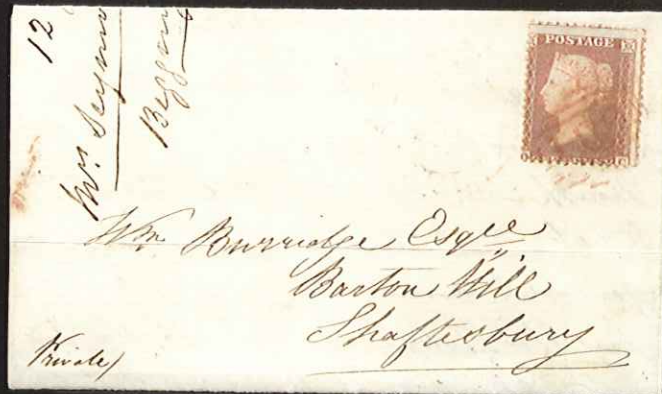 12
Mrs Seymo
Beggan
POSTAGE
Wm. Burridge Esqre
Barton Hill
Shaftesbury
Private